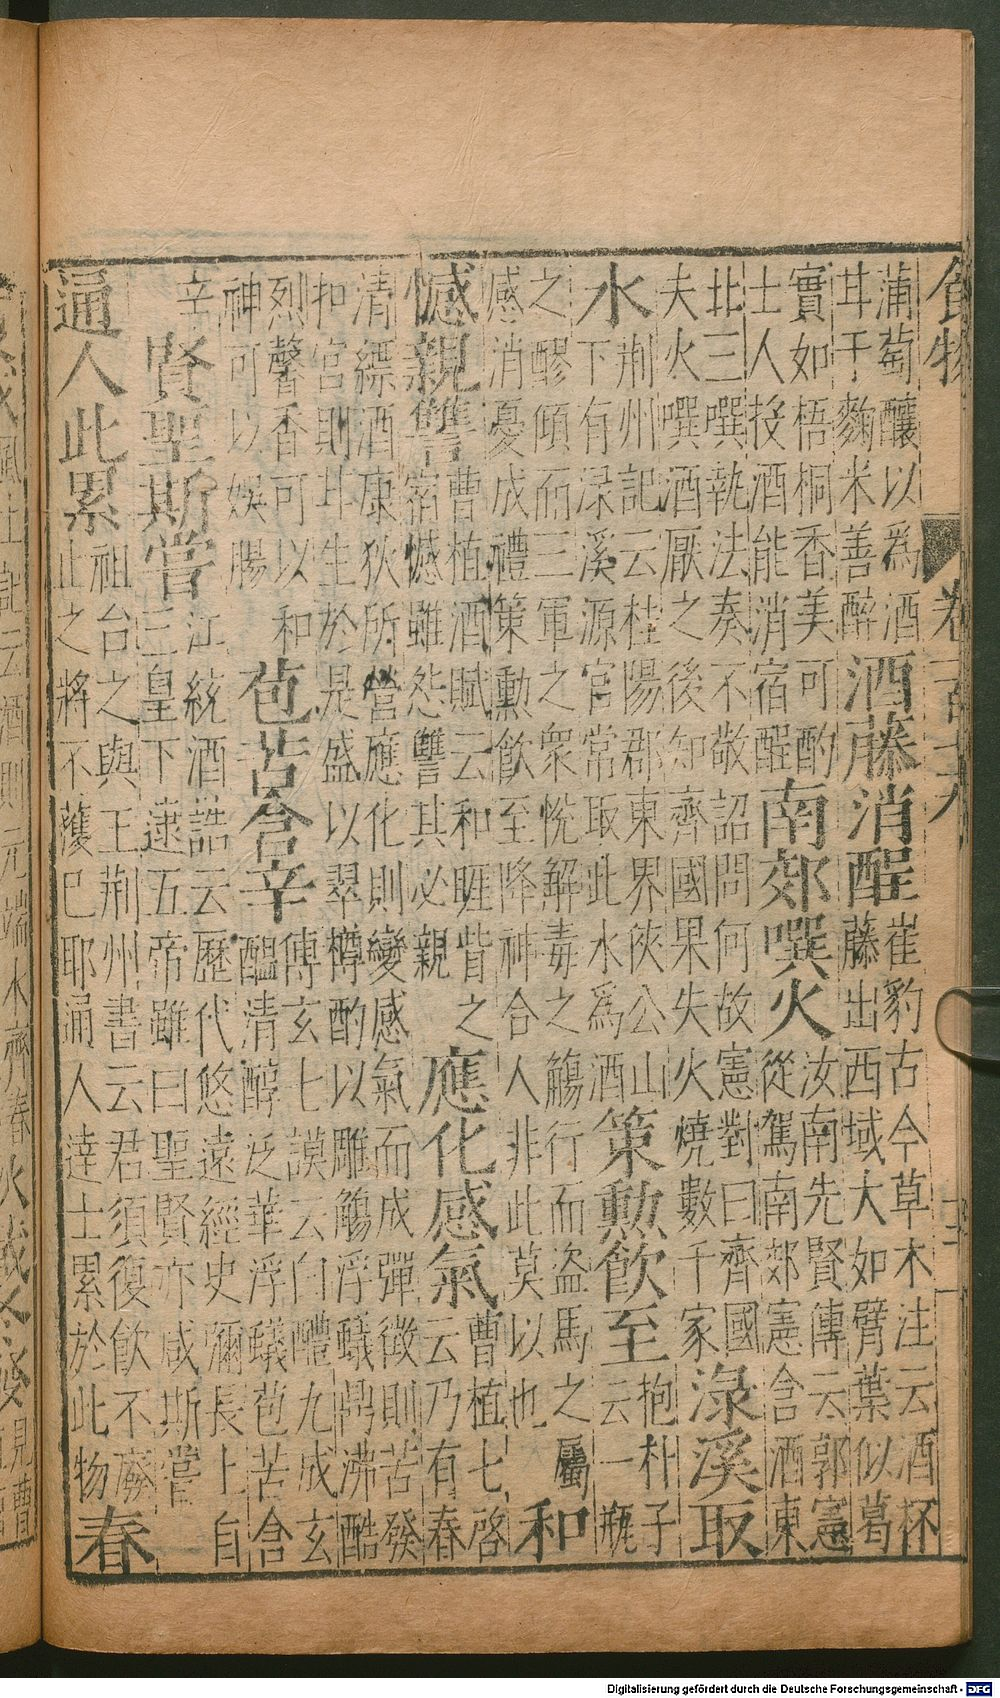 食物 卷
蒲萄釀以爲酒
耳于麴米善醉
酒藤消酲
崔豹古今草木注云酒杯
藤出西域大如臂葉似葛
實如梧桐香美可酌
士人投酒能消宿酲
南郊噀火
汝南先賢傳云郭憲
從駕南郊憲含酒東
北三噀執法奏不敬詔問何故憲對曰齊國
夫火噀酒厭之後知齊國果失火燒數千家
淥溪取
水
荆州記云桂陽郡東界俠公山
下有淥溪源官常取此水爲酒
策勳飲至
抱朴子
云一瓶
之醪傾而三軍之衆悅解毒之觴行而盜馬之屬
感消憂成禮策勳飲至降神合人非此莫以也
和
憾親讐
曹植酒賦云和睚眥之
宿憾雖怨讐其必親
應化感氣
曹植七啓
云乃有春
清縹酒康狄所營應化則變感氣而成彈徵則苦發
扣宮則甘生於是盛以翠樽酌以雕觴浮蟻鼎沸酷
烈馨香可以和
神可以娛腸
苞苦含辛
傅玄七謨云白醴九成玄
醖清醇泛華浮蟻苞苦含
辛
賢聖斯嘗
江統酒誥云歷代悠遠經史彌長上自
三皇下逮五帝雖曰聖賢亦咸斯嘗
通人此累
祖台之與王荆州書云君須復飲不廢
止之將不獲已耶通人達士累於此物
春
Digitalisierung gefördert durch die Deutsche Forschungsgemeinschaft - DFG